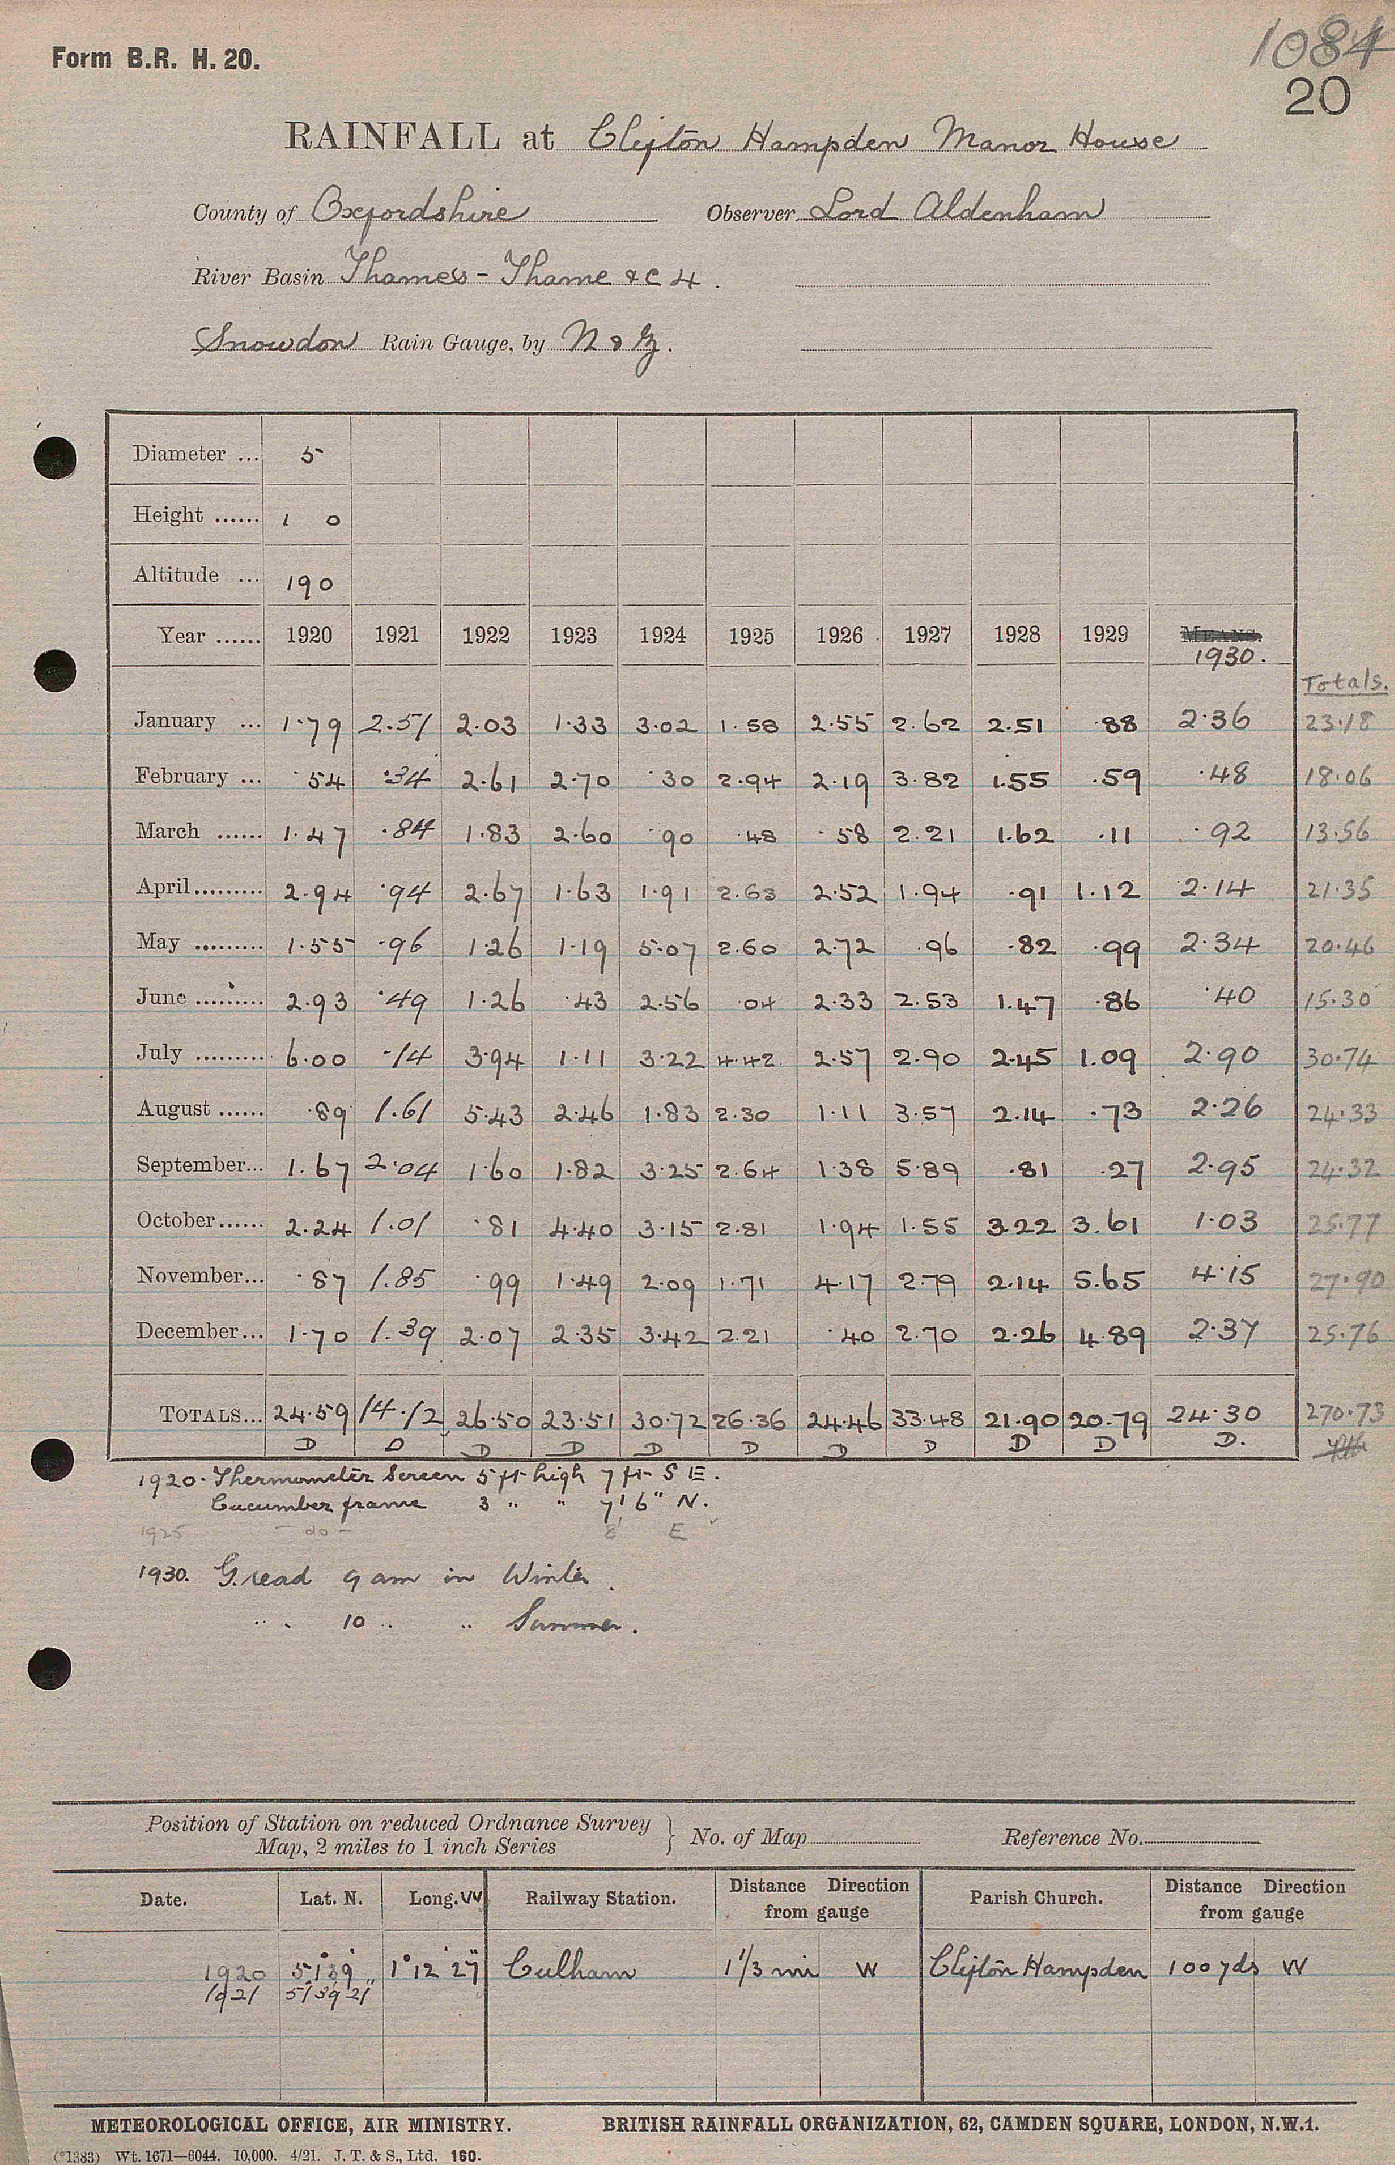 Form B.R. H. 20.
1084
20
RAINFALL at Clifton Hampden Manor House
County of Oxfordshire Observer Lord Aldenham
River Basin Thames - Thame &c 4.
Snowdon Rain Gauge, by N & Z.
Diameter ... 5
Height ...... 1 0
Altitude ... 190
Year ...... 1920 1921 1922 1923 1924 1925 1926 1927 1928 1929 MEANS.
1930.
Totals.
January ... 1.79 2.51 2.03 1.33 3.02 1.58 2.55 2.62 2.51 .88 2.36 23.18
February ... .54 .34 2.61 2.70 .30 2.94 2.19 3.82 1.55 .59 .48 18.06
March ...... 1.47 .84 1.83 2.60 .90 .48 .58 2.21 1.62 .11 .92 13.56
April......... 2.94 .94 2.67 1.63 1.91 2.63 2.52 1.94 .91 1.12 2.14 21.35
May ......... 1.55 .96 1.26 1.19 5.07 2.60 2.72 .96 .82 .99 2.34 20.46
June ......... 2.93 .49 1.26 .43 2.56 .04 2.33 2.53 1.47 .86 .40 15.30
July ......... 6.00 .14 3.94 1.11 3.22 4.42 2.57 2.90 2.45 1.09 2.90 30.74
August ...... .89 1.61 5.43 2.46 1.83 2.30 1.11 3.57 2.14 .73 2.26 24.33
September... 1.67 2.04 1.60 1.82 3.25 2.64 1.38 5.89 .81 .27 2.95 24.32
October...... 2.24 1.01 .81 4.40 3.15 2.81 1.94 1.55 3.22 3.61 1.03 25.77
November... .87 1.85 .99 1.49 2.09 1.71 4.17 2.79 2.14 5.65 4.15 27.90
December... 1.70 1.39 2.07 2.35 3.42 2.21 .40 2.70 2.26 4.89 2.37 25.76
TOTALS... 24.59 14.12 26.50 23.51 30.72 26.36 24.46 33.48 21.90 20.79 24.30 270.73
D D D D D D D D D D D.
1920. Thermometer Screen 5 ft high 7 ft S E.
Cucumber frame 3 " " 7' 6" N.
1925 - do - 8' E
1930. G. read 9 am in Winter.
" . 10 .. " Summer.
Position of Station on reduced Ordnance Survey
Map, 2 miles to 1 inch Series } No. of Map Reference No.
Date. Lat. N. Long. W Railway Station. Distance Direction
from gauge Parish Church. Distance Direction
from gauge
1920 51° 39' 1° 12' 27" Culham 1 1/3 mi W Clifton Hampden 100 yds W
1921 51 39 21"
METEOROLOGICAL OFFICE, AIR MINISTRY. BRITISH RAINFALL ORGANIZATION, 62, CAMDEN SQUARE, LONDON, N.W.1.
(*1383) Wt. 1671—6044. 10,000. 4/21. J. T. & S., Ltd. 160.